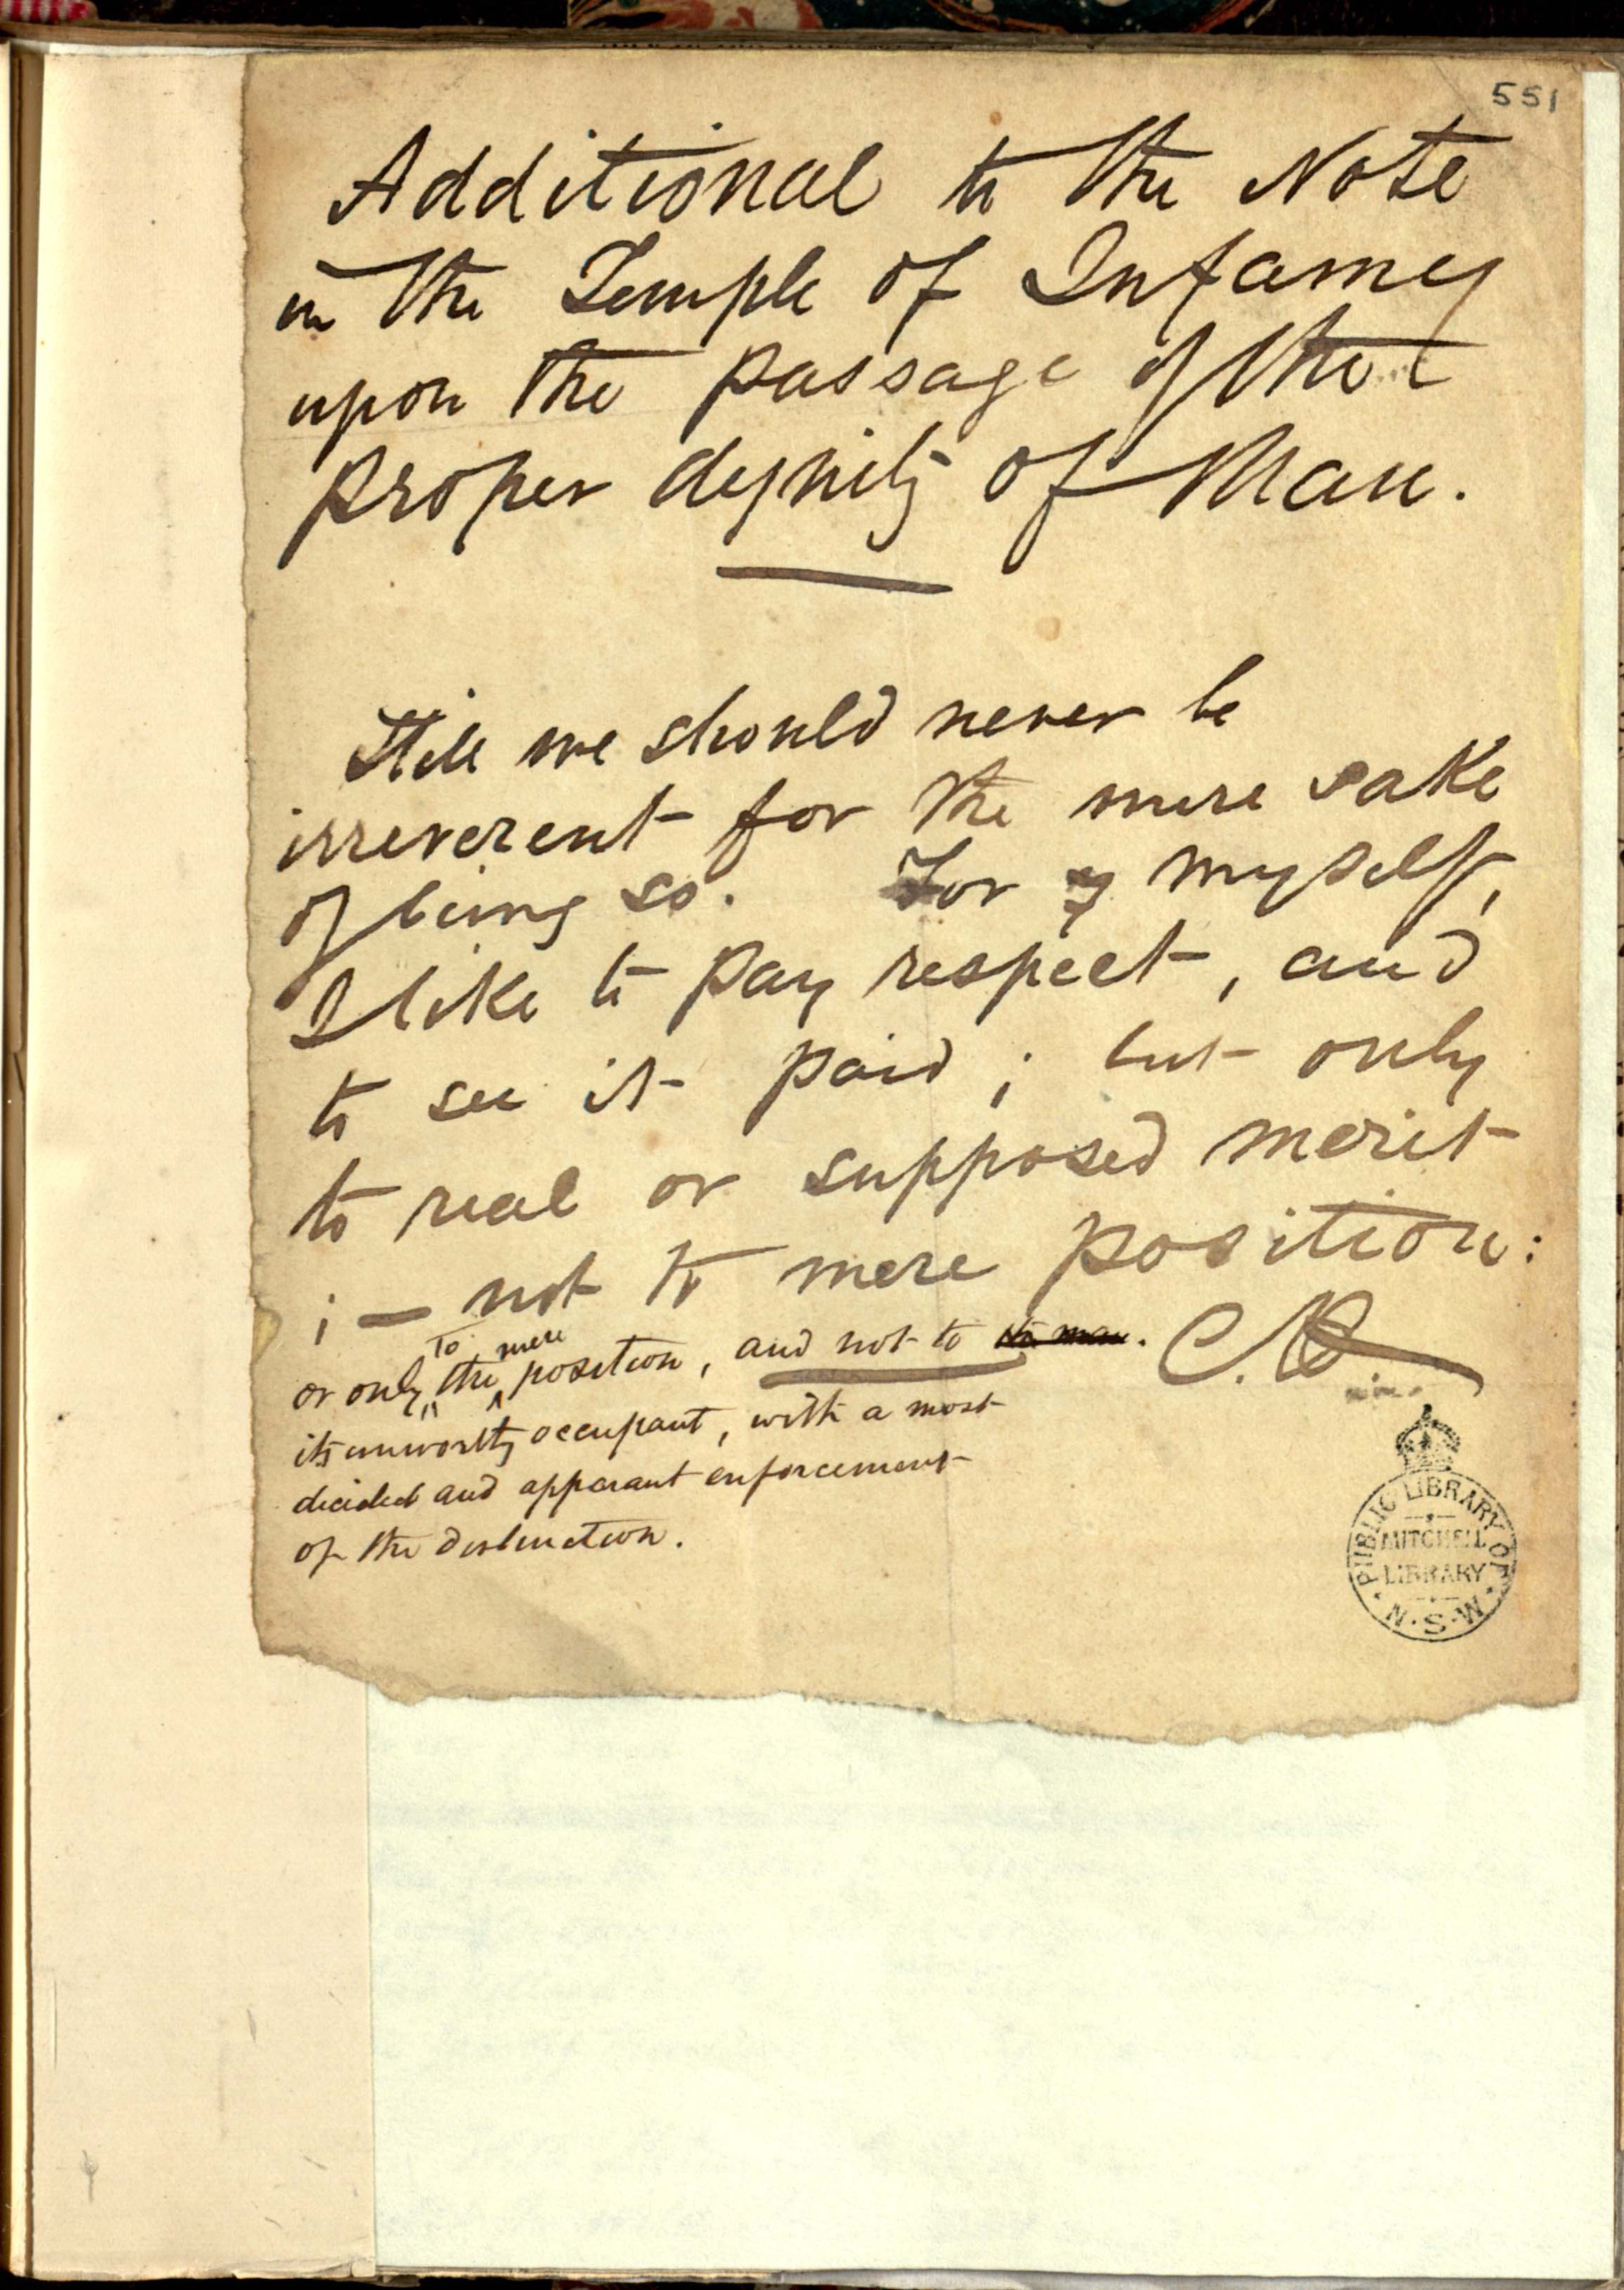 551
Additional to the Note
in the Temple of Infamy
upon the passage of the
proper dignity of Man.
Still we should never be
irreverent for the mere sake
of being so. For myself,
I like to pay respect, and
to see it paid; but only
to real or supposed merit
; — not to mere position:
or only to the mere position, and not to the man. C.H.
its unworthy occupant, with a most
decided and apparant enforcement
of the distinction.
PUBLIC LIBRARY OF N.S.W.
MITCHELL
LIBRARY